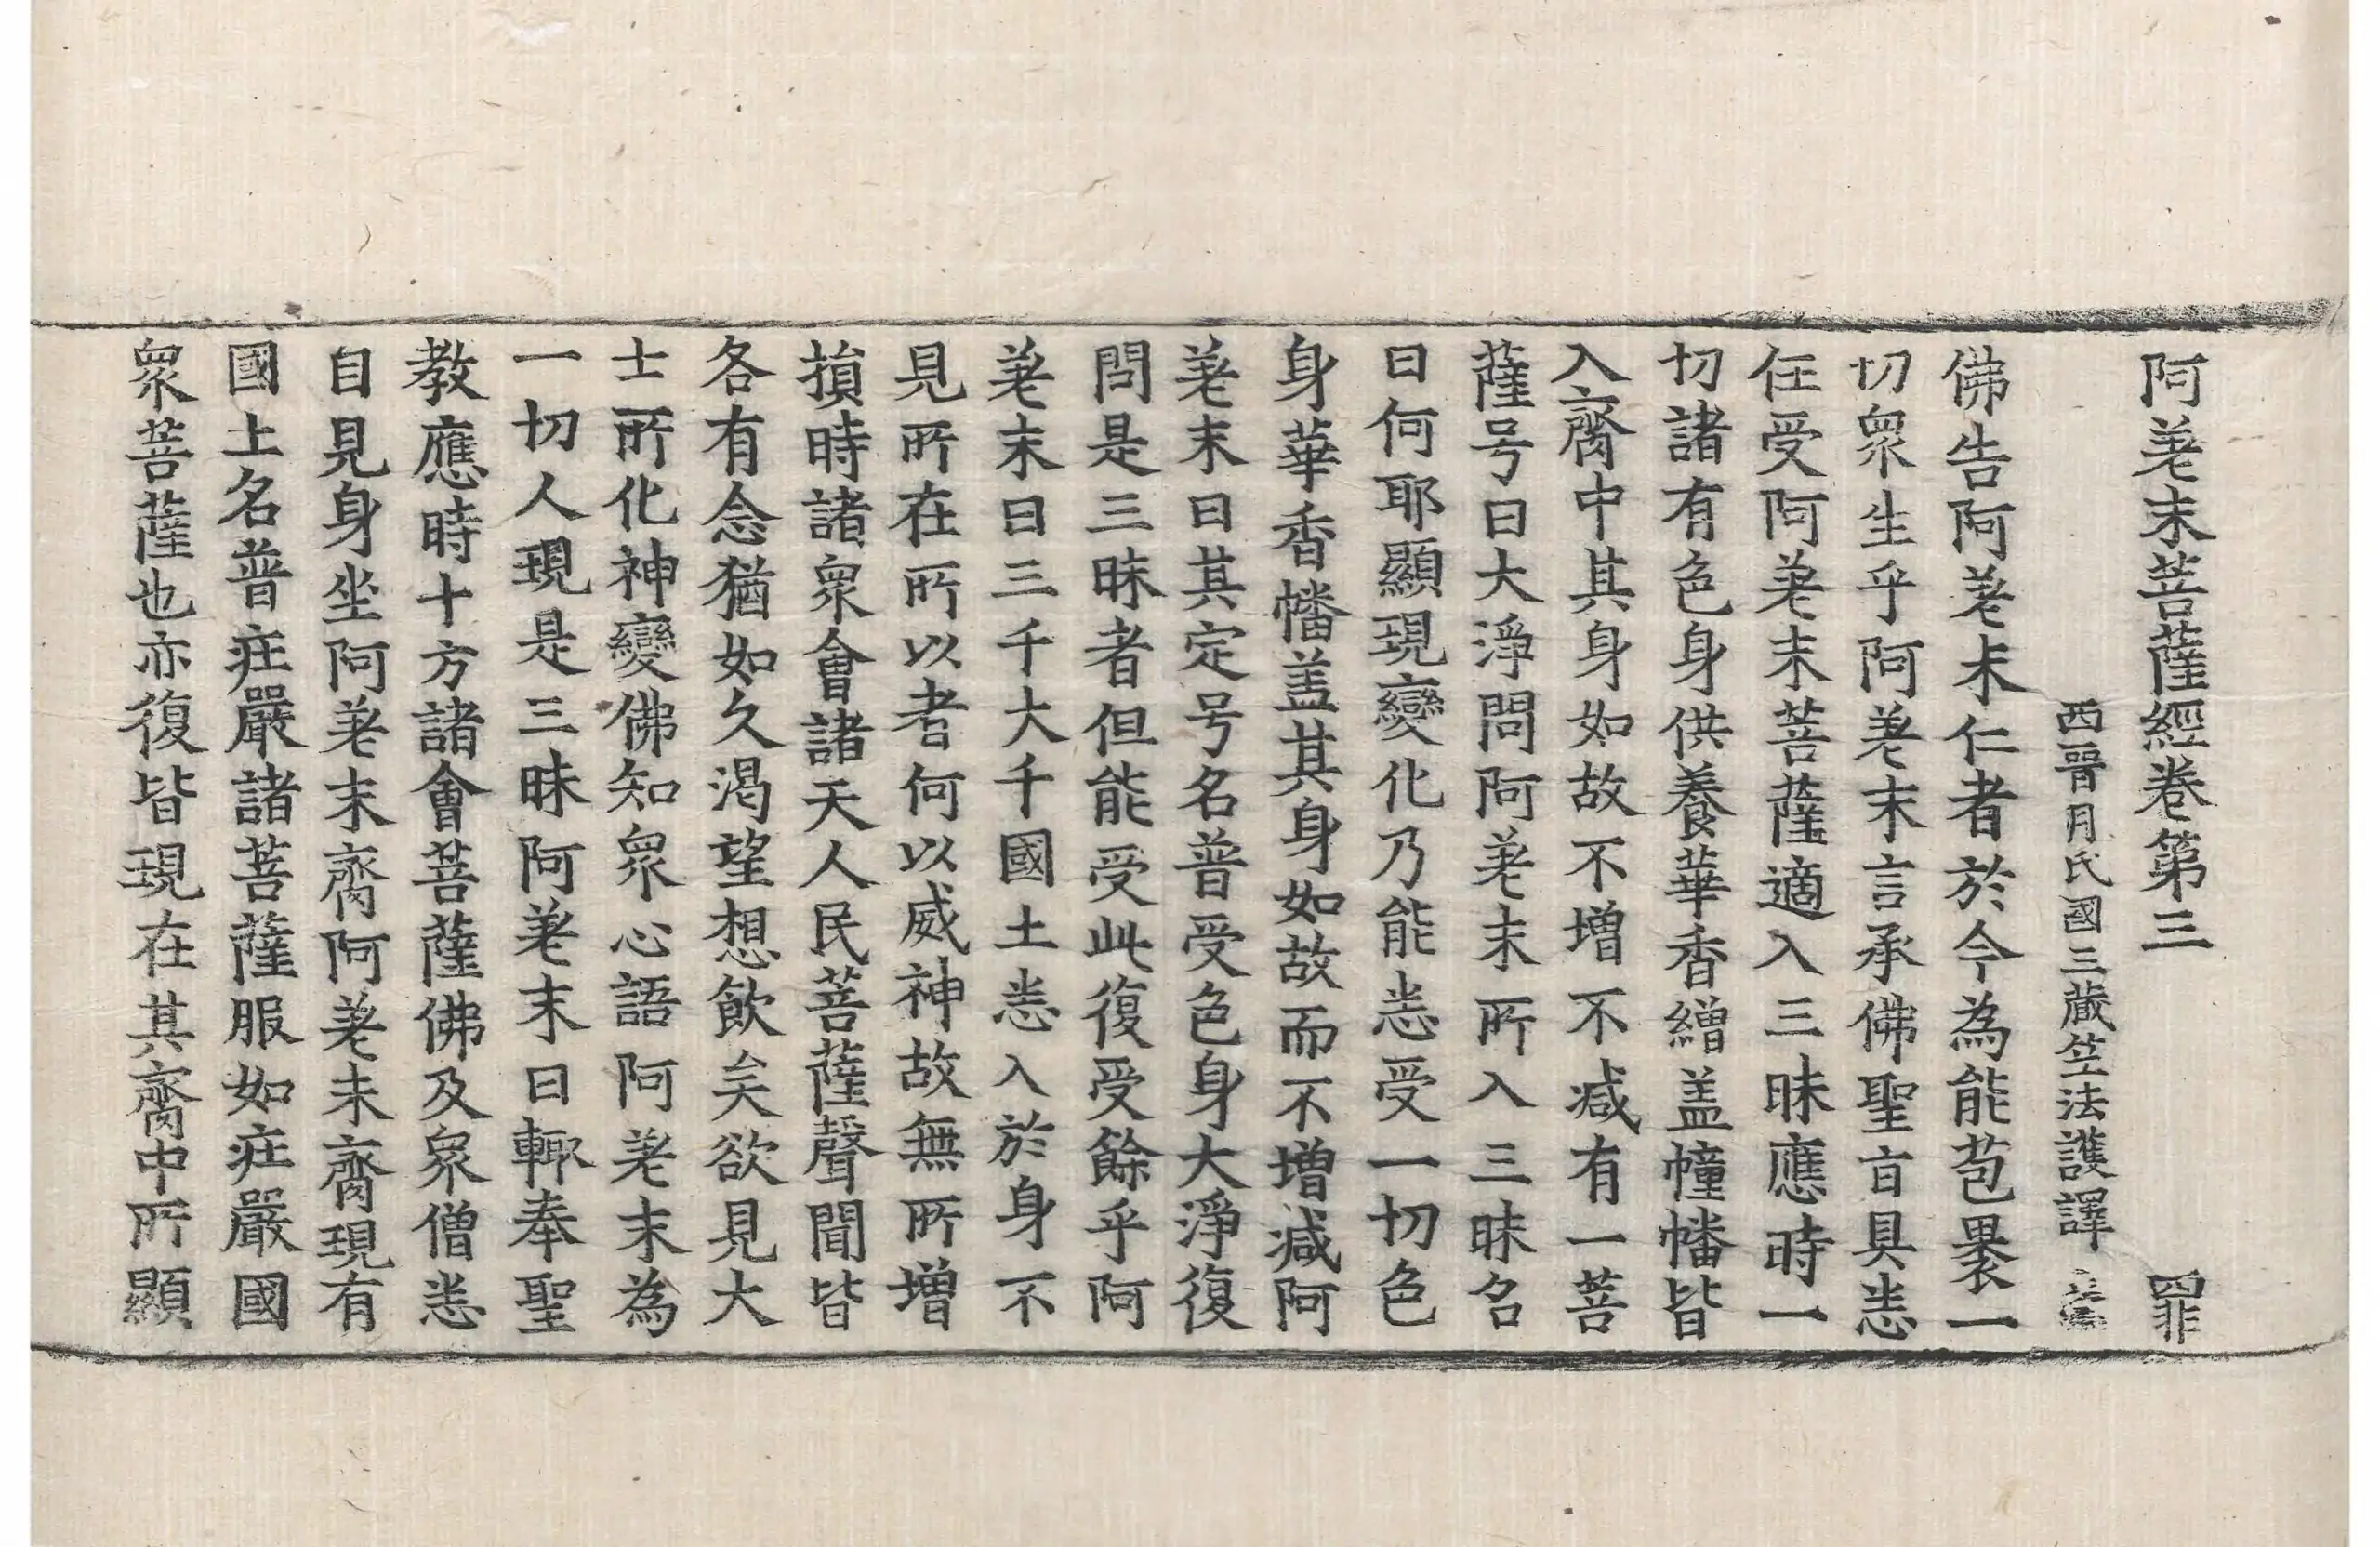 阿差末菩薩經卷第三 罪
西晉月氏國三藏竺法護譯
佛告阿差末仁者於今為能苞褁一
切衆生乎阿差末言承佛聖㫖具悉
任受阿差末菩薩適入三昧應時一
切諸有色身供養華香繒盖幢幡皆
入齎中其身如故不增不減有一菩
薩号曰大淨問阿差末所入三昧名
曰何耶顯現變化乃能悉受一切色
身華香幡盖其身如故而不增減阿
差末曰其定号名普受色身大淨復
問是三昧者但能受此復受餘乎阿
差末曰三千大千國土悉入於身不
見所在所以者何以威神故無所增
損時諸衆會諸天人民菩薩聲聞皆
各有念猶如久渴望想飲矣欲見大
士所化神變佛知衆心語阿差末為
一切人現是三昧阿差末曰輙奉聖
教應時十方諸會菩薩佛及衆僧悉
自見身坐阿差末齎阿差末齎現有
國土名普庄嚴諸菩薩服如庄嚴國
衆菩薩也亦復皆現在其齎中所顯